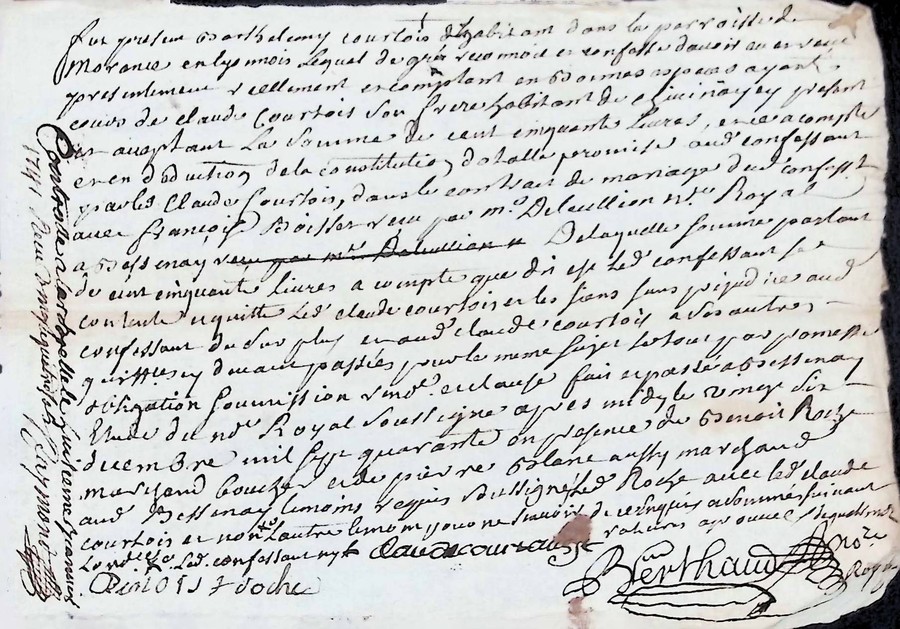 fut present Barthelemy courtois habitant dans la parroisse de
Morance en lyonnois lequel de gré reconnoit et confesse davoir eu et receu
presentement reellement et comptant en bonnes especes ayant
cours de claude Courtois son frere habitant de present
et aceptant La Somme de cent cinquante livres, et ce a compte
et en deduction de la constitution dotalle promise aud confessant
par led Claude Courtois, dans le contrait de mariage dud confesst
avec françoise Boisset receu par me Deleullion nre Royal
a Bessenay receu par me Deleullion n Delaquelle somme partant
de cent cinquante livres a compte que dit est led confessant se
contente et quitte led claude courtois et les siens sans prejudice aud
confessant du surplus et aud claude courtois a ses autres
quittces cy devant passées pour le meme sujet le tout par promesse
obligation soumission rend et clause fait et passé a Bessenay
Etude du nore Royal soussigné apres midy le vingt six
decembre mil sept quarante en presence de Benoit Roche
marchand boucher et de pierre Blanc aussy marchand
aud Bessenay temoins requis soussigné led Roche avec led claude
courtois et non lautre temoin pour ne scavoir de ce enquis
led confessant ny claude courtois ratures aprouvé
Benois Roche
Berthaud nore
Royal
Controllé a larbrelle le janvier
1741 reçu Reymond